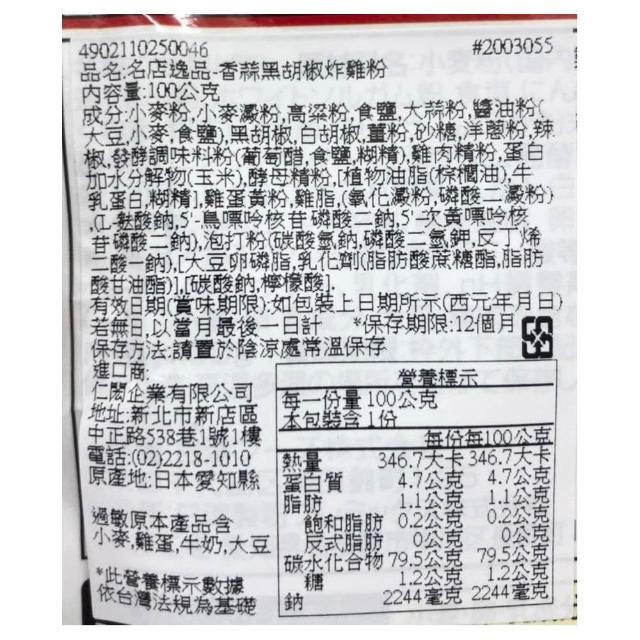 4902110250046 #2003055
品名:名店逸品-香蒜黑胡椒炸雞粉
內容量:100公克
成分:小麥粉,小麥澱粉,高粱粉,食鹽,大蒜粉,醬油粉(
大豆,小麥,食鹽),黑胡椒,白胡椒,薑粉,砂糖,洋蔥粉,辣
椒,發酵調味料粉(葡萄醋,食鹽,糊精),雞肉精粉,蛋白
加水分解物(玉米),酵母精粉,[植物油脂(棕櫚油),牛
乳蛋白,糊精],雞蛋黃粉,雞脂,(氧化澱粉,磷酸二澱粉)
,(L-麩酸鈉,5'-鳥嘌呤核苷磷酸二鈉,5'-次黃嘌呤核
苷磷酸二鈉),泡打粉(碳酸氫鈉,磷酸二氫鉀,反丁烯
二酸一鈉),[大豆卵磷脂,乳化劑(脂肪酸蔗糖酯,脂肪
酸甘油酯)],[碳酸鈉,檸檬酸].
有效日期(賞味期限):如包裝上日期所示(西元年月日)
若無日,以當月最後一日計 *保存期限:12個月
保存方法:請置於陰涼處常溫保存
進口商:
仁閎企業有限公司
地址:新北市新店區
中正路538巷1號1樓
電話:(02)2218-1010
原產地:日本愛知縣
過敏原本產品含
小麥,雞蛋,牛奶,大豆
*此營養標示數據
依台灣法規為基礎
營養標示
每一份量 100公克
本包裝含 1份
每份每100公克
熱量 346.7大卡 346.7大卡
蛋白質 4.7公克 4.7公克
脂肪 1.1公克 1.1公克
飽和脂肪 0.2公克 0.2公克
反式脂肪 0公克 0公克
碳水化合物 79.5公克 79.5公克
糖 1.2公克 1.2公克
鈉 2244毫克 2244毫克